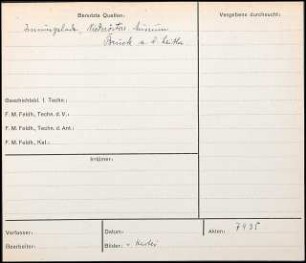 Benutzte Quellen:
Vergebens durchsucht:
Innungslade, Niederösterr. Museum
Bruck a. d. Leitha
Geschichtsbl. f. Techn.:
F. M. Feldh, Techn. d. V.:
F. M. Feldh, Techn. d. Ant.:
F. M. Feldh, Kat.:
Irrtümer:
Verfasser:
Datum:
Akten: 7435
Bearbeiter:
Bilder: